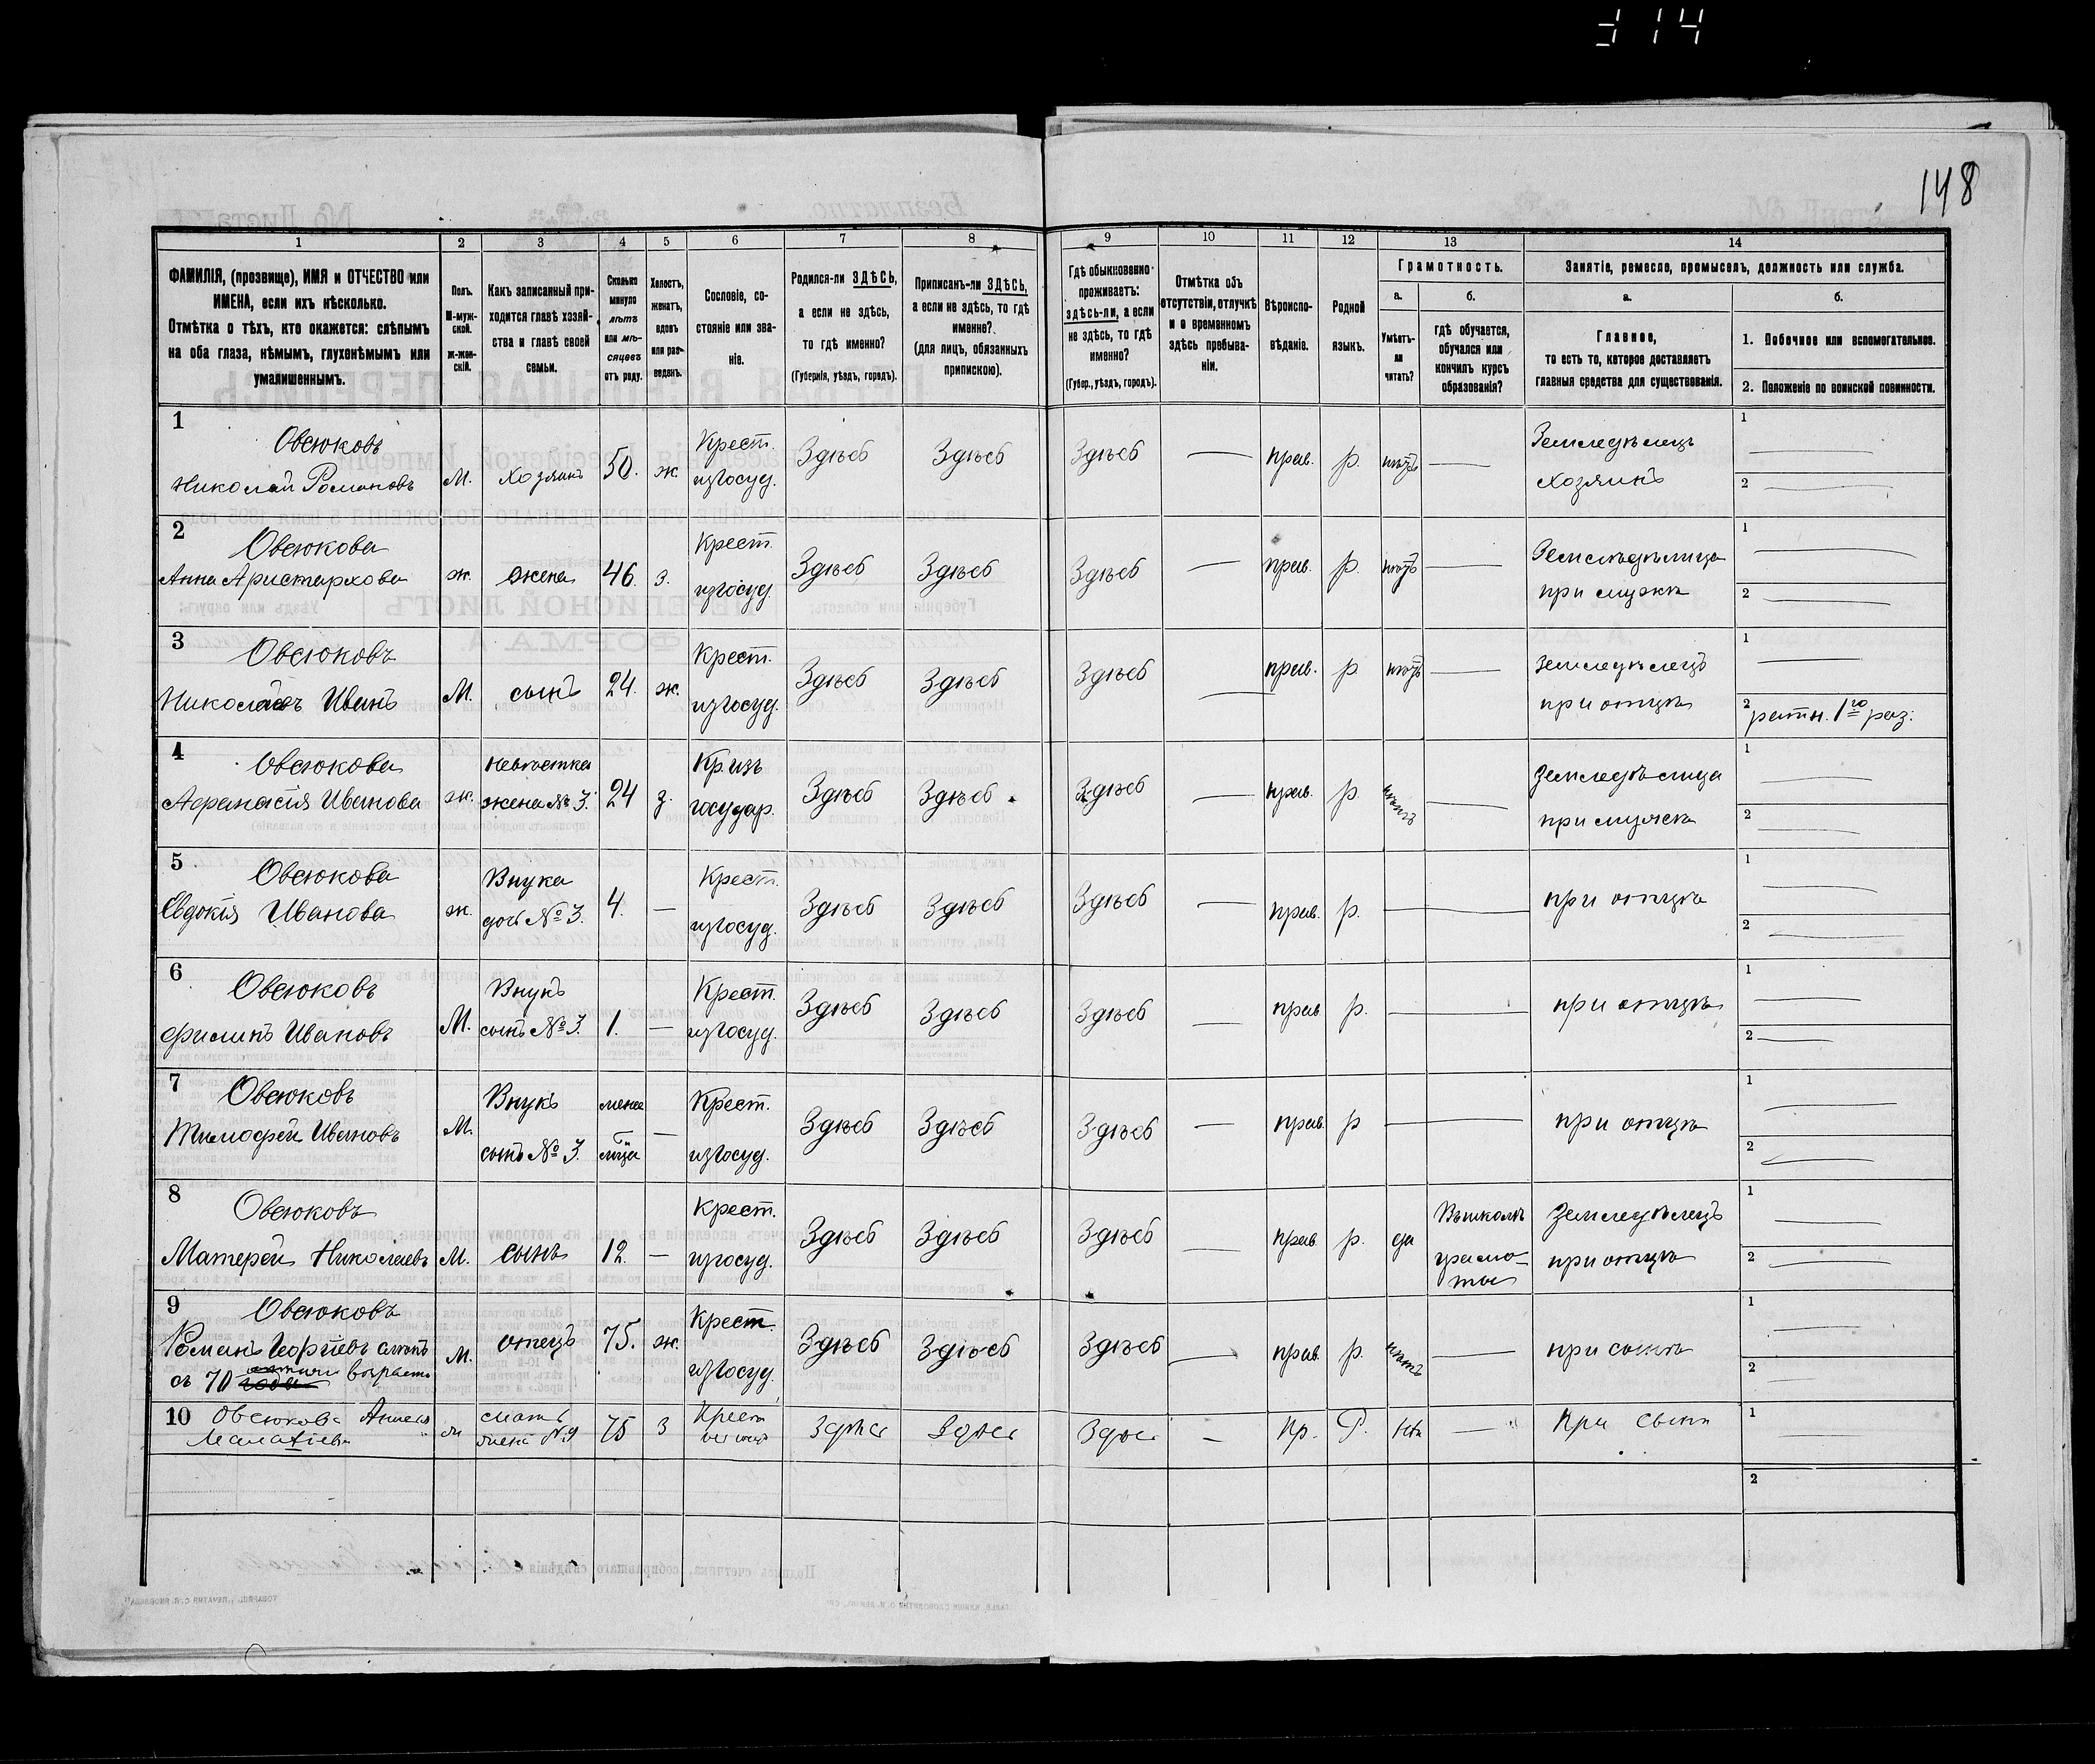 314
148
1 2 3 4 5 6 7 8 9 10 11 12 13 14
ФАМИЛІЯ, (прозвище), ИМЯ и ОТЧЕСТВО или
ИМЕНА, если ихъ нѣсколько.
Отмѣтка о тѣхъ, кто окажется: слѣпымъ
на оба глаза, нѣмымъ, глухонѣмымъ или
умалишеннымъ.
Полъ.
М-муж-
ской.
ж-жен-
скій.
Какъ записанный при-
ходится главѣ хозяй-
ства и главѣ своей
семьи.
Сколько
минуло
лѣтъ
или мѣ-
сяцевъ
отъ роду.
Холостъ,
женатъ,
вдовъ
или раз-
веденъ.
Сословіе, со-
стояніе или зва-
ніе.
Родился-ли ЗДѢСЬ,
а если не здѣсь,
то гдѣ именно?
(Губернія, уѣздъ, городъ).
Приписанъ-ли ЗДѢСЬ,
а если не здѣсь, то гдѣ
именно?
(для лицъ, обязанныхъ
припискою).
Гдѣ обыкновенно
проживаетъ:
здѣсь-ли, а если
не здѣсь, то гдѣ
именно?
(Губер., уѣздъ, городъ).
Отмѣтка объ
отсутствіи, отлучкѣ
и о временномъ
здѣсь пребыва-
ніи.
Вѣроиспо-
вѣданіе.
Родной
языкъ.
Грамотность.
а.
Умѣетъ-
ли
читать?
б.
гдѣ обучается,
обучался или
кончилъ курсъ
образованія?
Занятіе, ремесло, промыселъ, должность или служба.
а.
Главное,
то есть то, которое доставляетъ
главныя средства для существованія.
б.
1. Побочное или вспомогательное.
2. Положеніе по воинской повинности.
1
Овсюковъ Крест. Здѣсь Здѣсь Здѣсь — прав. р. нѣтъ — Земледѣлецъ 1 —
Николай Романовъ М. Хозяинъ 50. ж. изъ госуд. хозяинъ 2 —
2
Овсюкова Крест. Здѣсь Здѣсь Здѣсь — прав. р. нѣтъ — Земледѣлица 1 —
Анна Аристархова ж. жена 46. з. изъ госуд. при мужѣ 2 —
3
Овсюковъ Крест. Здѣсь Здѣсь Здѣсь — прав. р. нѣтъ — земледѣлецъ 1 —
Николаевъ Иванъ М. сынъ 24. ж. изъ госуд. при отцѣ 2 ратн. 1го раз.
4
Овсюкова невѣстка Кр. изъ Здѣсь Здѣсь Здѣсь — прав. р. нѣтъ — земледѣлица 1 —
Афанасія Иванова ж. жена № 3. 24 з. государ. при мужѣ 2 —
5
Овсюкова Внука Крест. Здѣсь Здѣсь Здѣсь — прав. р. — — при отцѣ 1 —
Евдокія Иванова ж. дочь № 3. 4. — изъ госуд. 2 —
6
Овсюковъ Внукъ Крест. Здѣсь Здѣсь Здѣсь — прав. р. — — при отцѣ 1 —
Филипъ Ивановъ М. сынъ № 3. 1. — изъ госуд. 2 —
7
Овсюковъ Внукъ менее Крест. Здѣсь Здѣсь Здѣсь — прав. р — — при отцѣ 1 —
Тимофей Ивановъ М. сынъ № 3. — изъ госуд. 2 —
8
Овсюковъ Крест. Здѣсь Здѣсь Здѣсь — прав. р. да Въ школѣ земледѣлецъ 1 —
Матерей Николаевъ М. сынъ 12. — изъ госуд. грамо-
ты при отцѣ 2 —
9
Овсюковъ Крест. Здѣсь Здѣсь Здѣсь — прав. р. нѣтъ — при сынѣ 1 —
Романъ М. отецъ 75. ж. изъ госуд. 2 —
съ 70
10 Овсюкова мать 75 З Крест Здѣсь Здѣсь Здѣсь — Пр. Р. — При сынѣ 1 —
жена №9
2